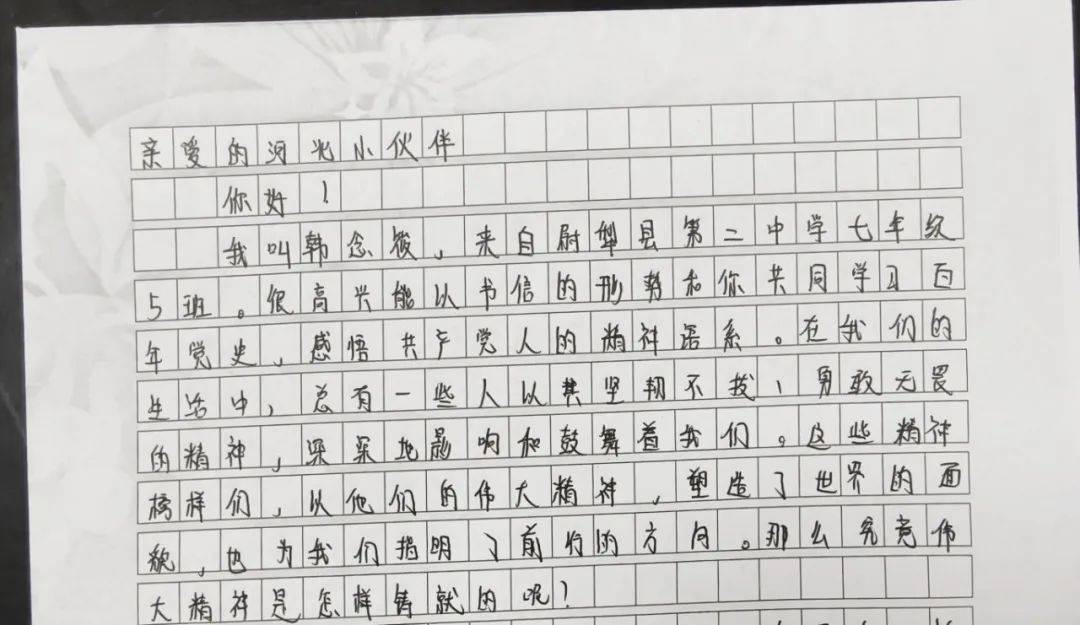 亲爱的河北小伙伴
你好！
我叫韩念筱，来自尉犁县第二中学七年级
5班。很高兴能以书信的形势和你共同学习百
年党史，感悟共产党人的精神谱系。在我们的
生活中，总有一些人以其坚韧不拔、勇敢无畏
的精神，深深地影响和鼓舞着我们。这些精神
榜样们，以他们的伟大精神，塑造了世界的面
貌，也为我们指明了前行的方向。那么究竟伟
大精神是怎样铸就的呢？